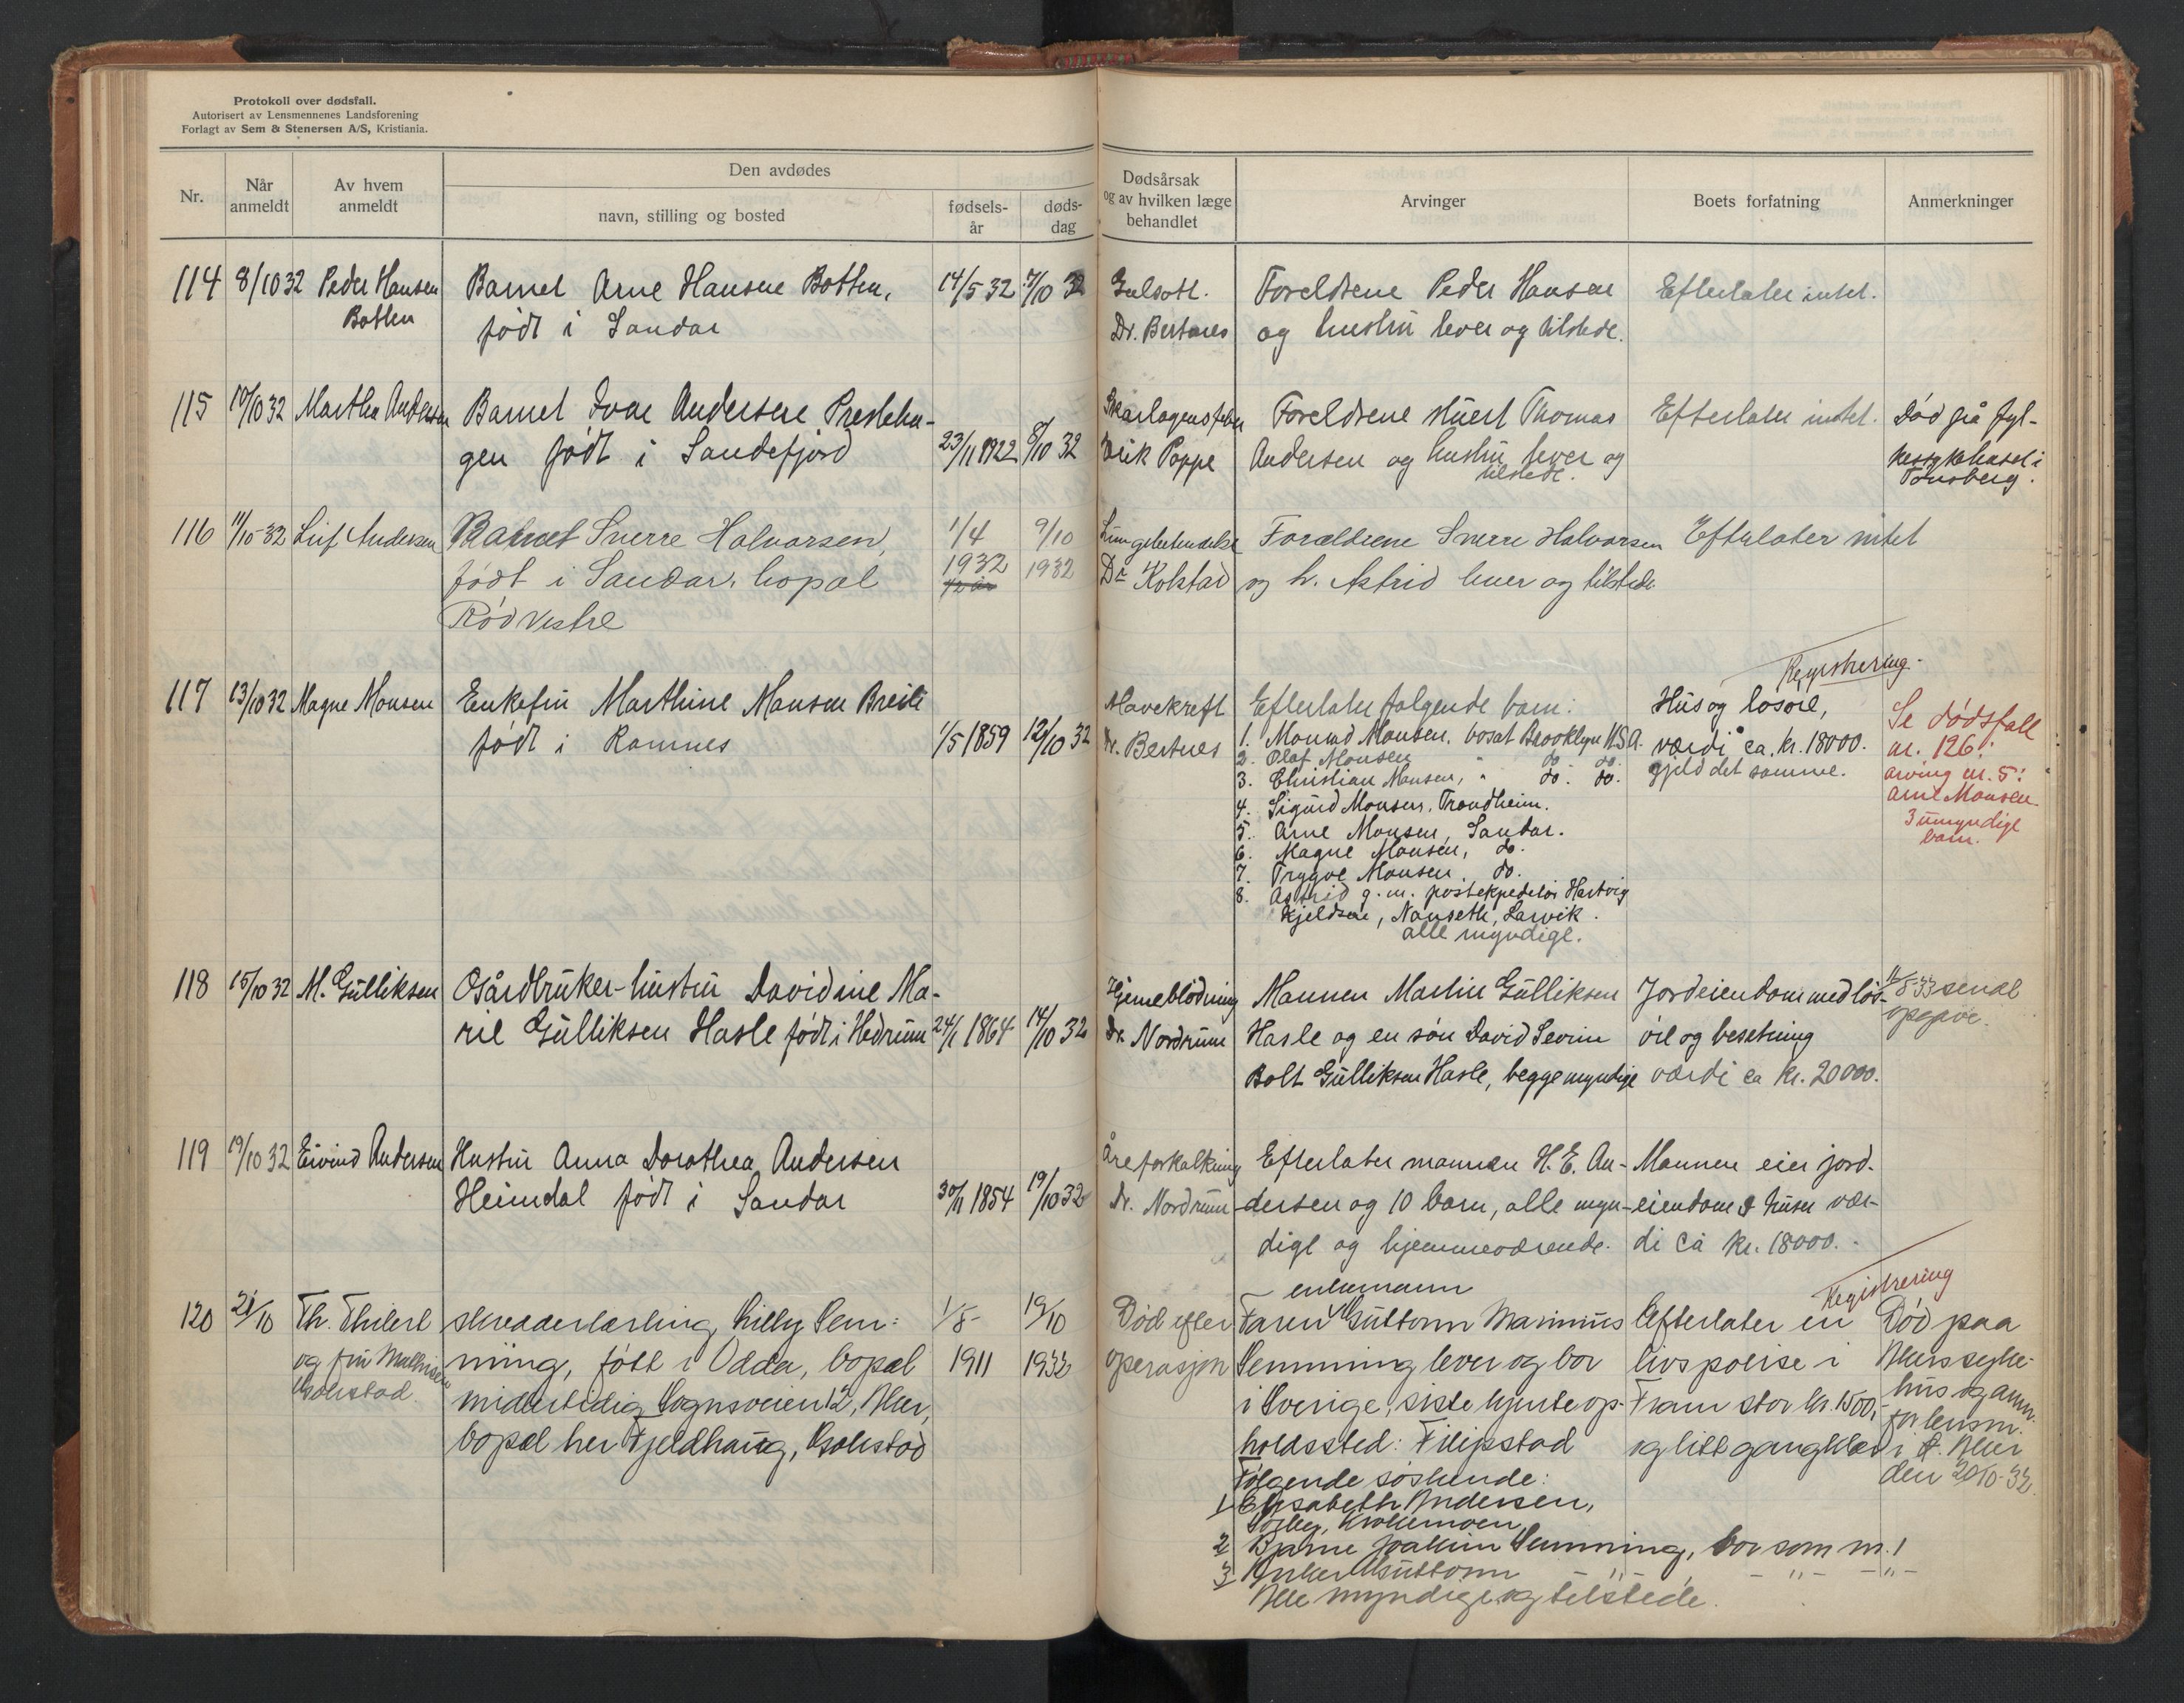 Protokoll over dødsfall.
Autorisert av Lensmennenes Landsforening
Forlagt av Sem & Stenersen A/S, Kristiania.
Nr.
Når anmeldt
Av hvem anmeldt
Den avdødes
navn, stilling og bosted
fødsels-år
døds-dag
Dødsårsak og av hvilken læge behandlet
Arvinger
Boets forfatning
Anmerkninger
114 8/10 32 Peder Hansen Barnet Arne Hansen Botten, 14/5 32 7/10 32 Gulsott. Foreldrene Peder Hansen Efterlater intet.
Botten født i Sandar Dr. Bertnes og hustru lever og tilstede.
115 10/10 32 Martha Andersen Barnet Ivar Andersen Presteha- Skarlagensfeber Foreldrene stuert Thomas Efterlater intet. Død på fyl-
gen født i Sandefjord 23/11 1922 8/10 32 Erik Poppe Andersen og hustru lever og kessykehuset i
tilstede. Tønsberg.
116 11/10-32 Leif Andersen Barnet Sverre Halvorsen, 1/4 9/10 Lungebetendelse Forældrene Sverre Halvorsen Efterlater intet
født i Sandar, bopæl 1932 1932 Dr Kolstad og h. Astrid lever og tilstede
Rød vestre 1/2 år
Registrering.
117 13/10 32 Magne Monsen Enkefru Marthine Monsen Breili Mavekreft Efterlater følgende barn: Hus og løsøre, Se dødsfall
født i Ramnes 1/5 1859 12/10 32 Dr. Bertnes 1. Monrad Monsen, bosat Brooklyn U.S.A. værdi ca. kr. 18000. nr. 126.
2. Olaf Monsen " do. do. gjeld det samme.
3. Christian Monsen, " do. do. arving nr. 5:
4. Sigurd Monsen, Trondheim. Arne Monsen
5. Arne Monsen, Sandar. 3 umyndige
6. Magne Monsen, do. barn.
7. Trygve Monsen, do.
8. Astrid g. m. postekspeditør Hartvig
Kjeldsen, Nanseth, Larvik.
alle myndige.
118 15/10 32 M. Gulliksen Gårdbruker-hustru Davidine Ma- Hjerneblødning Mannen Martin Gulliksen Jordeiendom med løs- 11/8-33 sendt
rie Gulliksen Hasle født i Hedrum 24/1 1864 14/10 32 Dr. Nordrum Hasle og en søn David Severin øre og besetning opgave.
Bolt Gulliksen Hasle, begge myndige værdi ca kr. 20000.
119 19/10 32 Eivind Andersen Hustru Anna Dorothea Andersen Åreforkalkning Efterlater mannen H. E. An- Mannen eier jord-
Heimdal født i Sandar 30/11 1854 19/10 32 Dr. Nordrum dersen og 10 barn, alle myn- eiendom & huser vær-
dige og hjemmeværende. di ca kr. 18000.
enkemann Registrering
120 21/10 Th. Ehilert skredderlærling Lilly Sem- 1/8- 19/10 Død efter Faren Guttorm Marinius Efterlater en Død paa
og fru Mathisen ming, født i Odda, bopæl 1911 1932 operasjon Semming lever og bor livspolise i Akers syke-
midlertidig Sognsveien 12, Aker, i Sverige, siste kjente op- Fram stor kr. 1500,- hus og anm.
bopæl her Fjeldhaug, holdssted: Filipstad og litt gangklær for lensm.
Følgende søskende: i Aker
1 Elisabeth Andersen, den 20/10-32.
2 Bjarne Joakim Semming, bor som nr. 1
3 Guttorm -"- -"-
Alle myndige og tilstede.